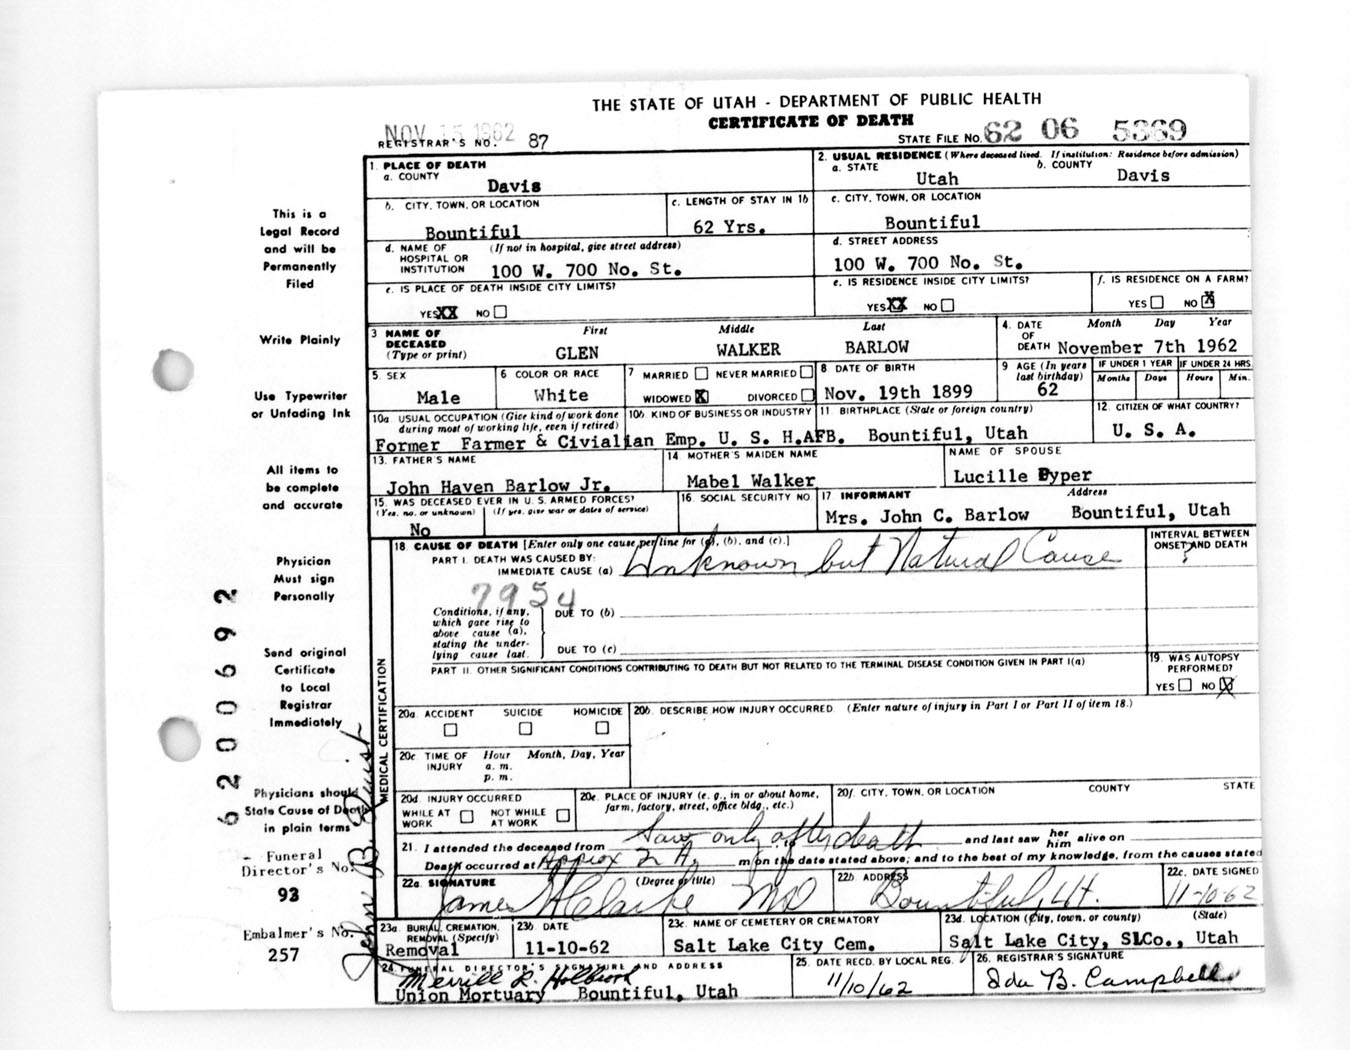 THE STATE OF UTAH - DEPARTMENT OF PUBLIC HEALTH
CERTIFICATE OF DEATH
NOV 15 1962
REGISTRAR'S NO. 87
STATE FILE NO. 62 06 5369
1. PLACE OF DEATH
a. COUNTY
Davis
2. USUAL RESIDENCE (Where deceased lived. If institution: Residence before admission)
a. STATE Utah b. COUNTY Davis
b. CITY, TOWN, OR LOCATION
Bountiful
c. LENGTH OF STAY IN 1b
62 Yrs.
c. CITY, TOWN, OR LOCATION
Bountiful
d. NAME OF HOSPITAL OR INSTITUTION (If not in hospital, give street address)
100 W. 700 No. St.
d. STREET ADDRESS
100 W. 700 No. St.
e. IS PLACE OF DEATH INSIDE CITY LIMITS?
YES XX NO
e. IS RESIDENCE INSIDE CITY LIMITS?
YES XX NO
f. IS RESIDENCE ON A FARM?
YES NO X
3 NAME OF DECEASED (Type or print)
First Middle Last
GLEN WALKER BARLOW
4. DATE OF DEATH Month Day Year
November 7th 1962
5. SEX
Male
6 COLOR OR RACE
White
7 MARRIED NEVER MARRIED
WIDOWED X DIVORCED
8 DATE OF BIRTH
Nov. 19th 1899
9 AGE (In years last birthday)
62
IF UNDER 1 YEAR IF UNDER 24 HRS.
Months Days Hours Min.
10a. USUAL OCCUPATION (Give kind of work done during most of working life, even if retired)
10b. KIND OF BUSINESS OR INDUSTRY
Former Farmer & Civialian Emp. U. S. H.AFB.
11. BIRTHPLACE (State or foreign country)
Bountiful, Utah
12. CITIZEN OF WHAT COUNTRY?
U. S. A.
13. FATHER'S NAME
John Haven Barlow Jr.
14 MOTHER'S MAIDEN NAME
Mabel Walker
NAME OF SPOUSE
Lucille Dyper
15. WAS DECEASED EVER IN U. S. ARMED FORCES?
(Yes, no, or unknown) (If yes, give war or dates of service)
No
16. SOCIAL SECURITY NO.
17 INFORMANT Address
Mrs. John C. Barlow Bountiful, Utah
18. CAUSE OF DEATH [Enter only one cause per line for (a), (b), and (c).]
PART I. DEATH WAS CAUSED BY:
IMMEDIATE CAUSE (a) Unknown but Natural Cause
INTERVAL BETWEEN ONSET AND DEATH
?
7954
Conditions, if any, which gave rise to above cause (a), stating the underlying cause last.
DUE TO (b)
DUE TO (c)
PART II. OTHER SIGNIFICANT CONDITIONS CONTRIBUTING TO DEATH BUT NOT RELATED TO THE TERMINAL DISEASE CONDITION GIVEN IN PART I(a)
19. WAS AUTOPSY PERFORMED?
YES NO X
MEDICAL CERTIFICATION
20a. ACCIDENT SUICIDE HOMICIDE
20b. DESCRIBE HOW INJURY OCCURRED. (Enter nature of injury in Part I or Part II of item 18.)
20c TIME OF INJURY Hour Month, Day, Year
a. m.
p. m.
20d. INJURY OCCURRED
WHILE AT WORK NOT WHILE AT WORK
20e. PLACE OF INJURY (e. g., in or about home, farm, factory, street, office bldg., etc.)
20f. CITY, TOWN, OR LOCATION COUNTY STATE
21. I attended the deceased from Saw only after death to and last saw her him alive on
Death occurred at Approx 2 A. m on the date stated above; and to the best of my knowledge, from the causes stated
22a. SIGNATURE (Degree or title)
James H Clarke MD
22b. ADDRESS
Bountiful, Ut.
22c. DATE SIGNED
11-10-62
23a. BURIAL, CREMATION, REMOVAL (Specify)
Removal
23b. DATE
11-10-62
23c. NAME OF CEMETERY OR CREMATORY
Salt Lake City Cem.
23d. LOCATION (City, town, or county) (State)
Salt Lake City, SLCo., Utah
24. FUNERAL DIRECTOR'S SIGNATURE AND ADDRESS
Merrill R. Holbrook
Union Mortuary Bountiful, Utah
25. DATE RECD. BY LOCAL REG.
11/10/62
26. REGISTRAR'S SIGNATURE
Ida B. Campbell
This is a
Legal Record
and will be
Permanently
Filed
Write Plainly
Use Typewriter
or Unfading Ink
All items to
be complete
and accurate
Physician
Must sign
Personally
Send original
Certificate
to Local
Registrar
Immediately
Physicians should
State Cause of Death
in plain terms
Funeral
Director's No.
93
Embalmer's No.
257
6200692
John B.